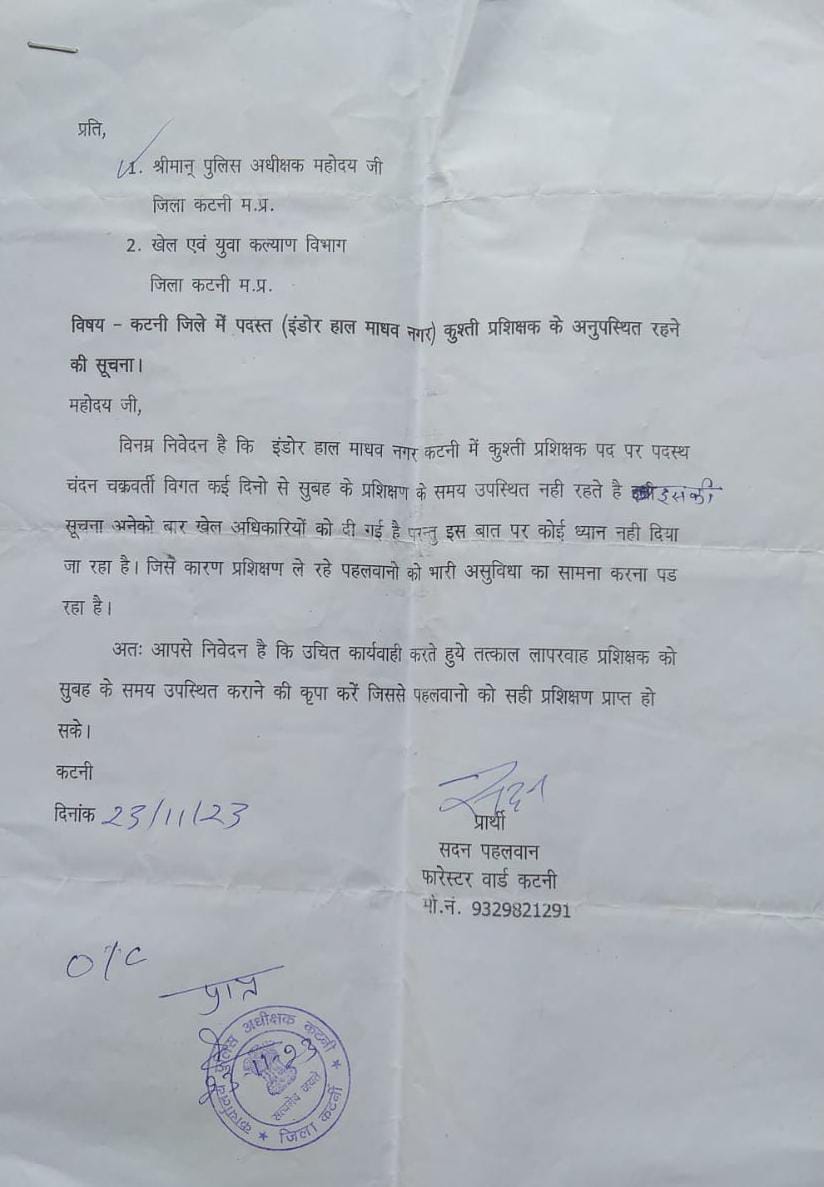 प्रति,
1. श्रीमान् पुलिस अधीक्षक महोदय जी
जिला कटनी म.प्र.
2. खेल एवं युवा कल्याण विभाग
जिला कटनी म.प्र.
विषय – कटनी जिले में पदस्त (इंडोर हाल माधव नगर) कुश्ती प्रशिक्षक के अनुपस्थित रहने
की सूचना।
महोदय जी,
विनम्र निवेदन है कि इंडोर हाल माधव नगर कटनी में कुश्ती प्रशिक्षक पद पर पदस्थ
चंदन चक्रवर्ती विगत कई दिनो से सुबह के प्रशिक्षण के समय उपस्थित नही रहते है इसकी
सूचना अनेको बार खेल अधिकारियों को दी गई है परन्तु इस बात पर कोई ध्यान नही दिया
जा रहा है। जिसे कारण प्रशिक्षण ले रहे पहलवानो को भारी असुविधा का सामना करना पड
रहा है।
अतः आपसे निवेदन है कि उचित कार्यवाही करते हुये तत्काल लापरवाह प्रशिक्षक को
सुबह के समय उपस्थित कराने की कृपा करें जिससे पहलवानो को सही प्रशिक्षण प्राप्त हो
सके।
कटनी
दिनांक 23/11/23
सदन
प्रार्थी
सदन पहलवान
फारेस्टर वार्ड कटनी
मो.नं. 9329821291
O/C
कार्यालय पुलिस अधीक्षक कटनी
सत्यमेव जयते
जिला कटनी